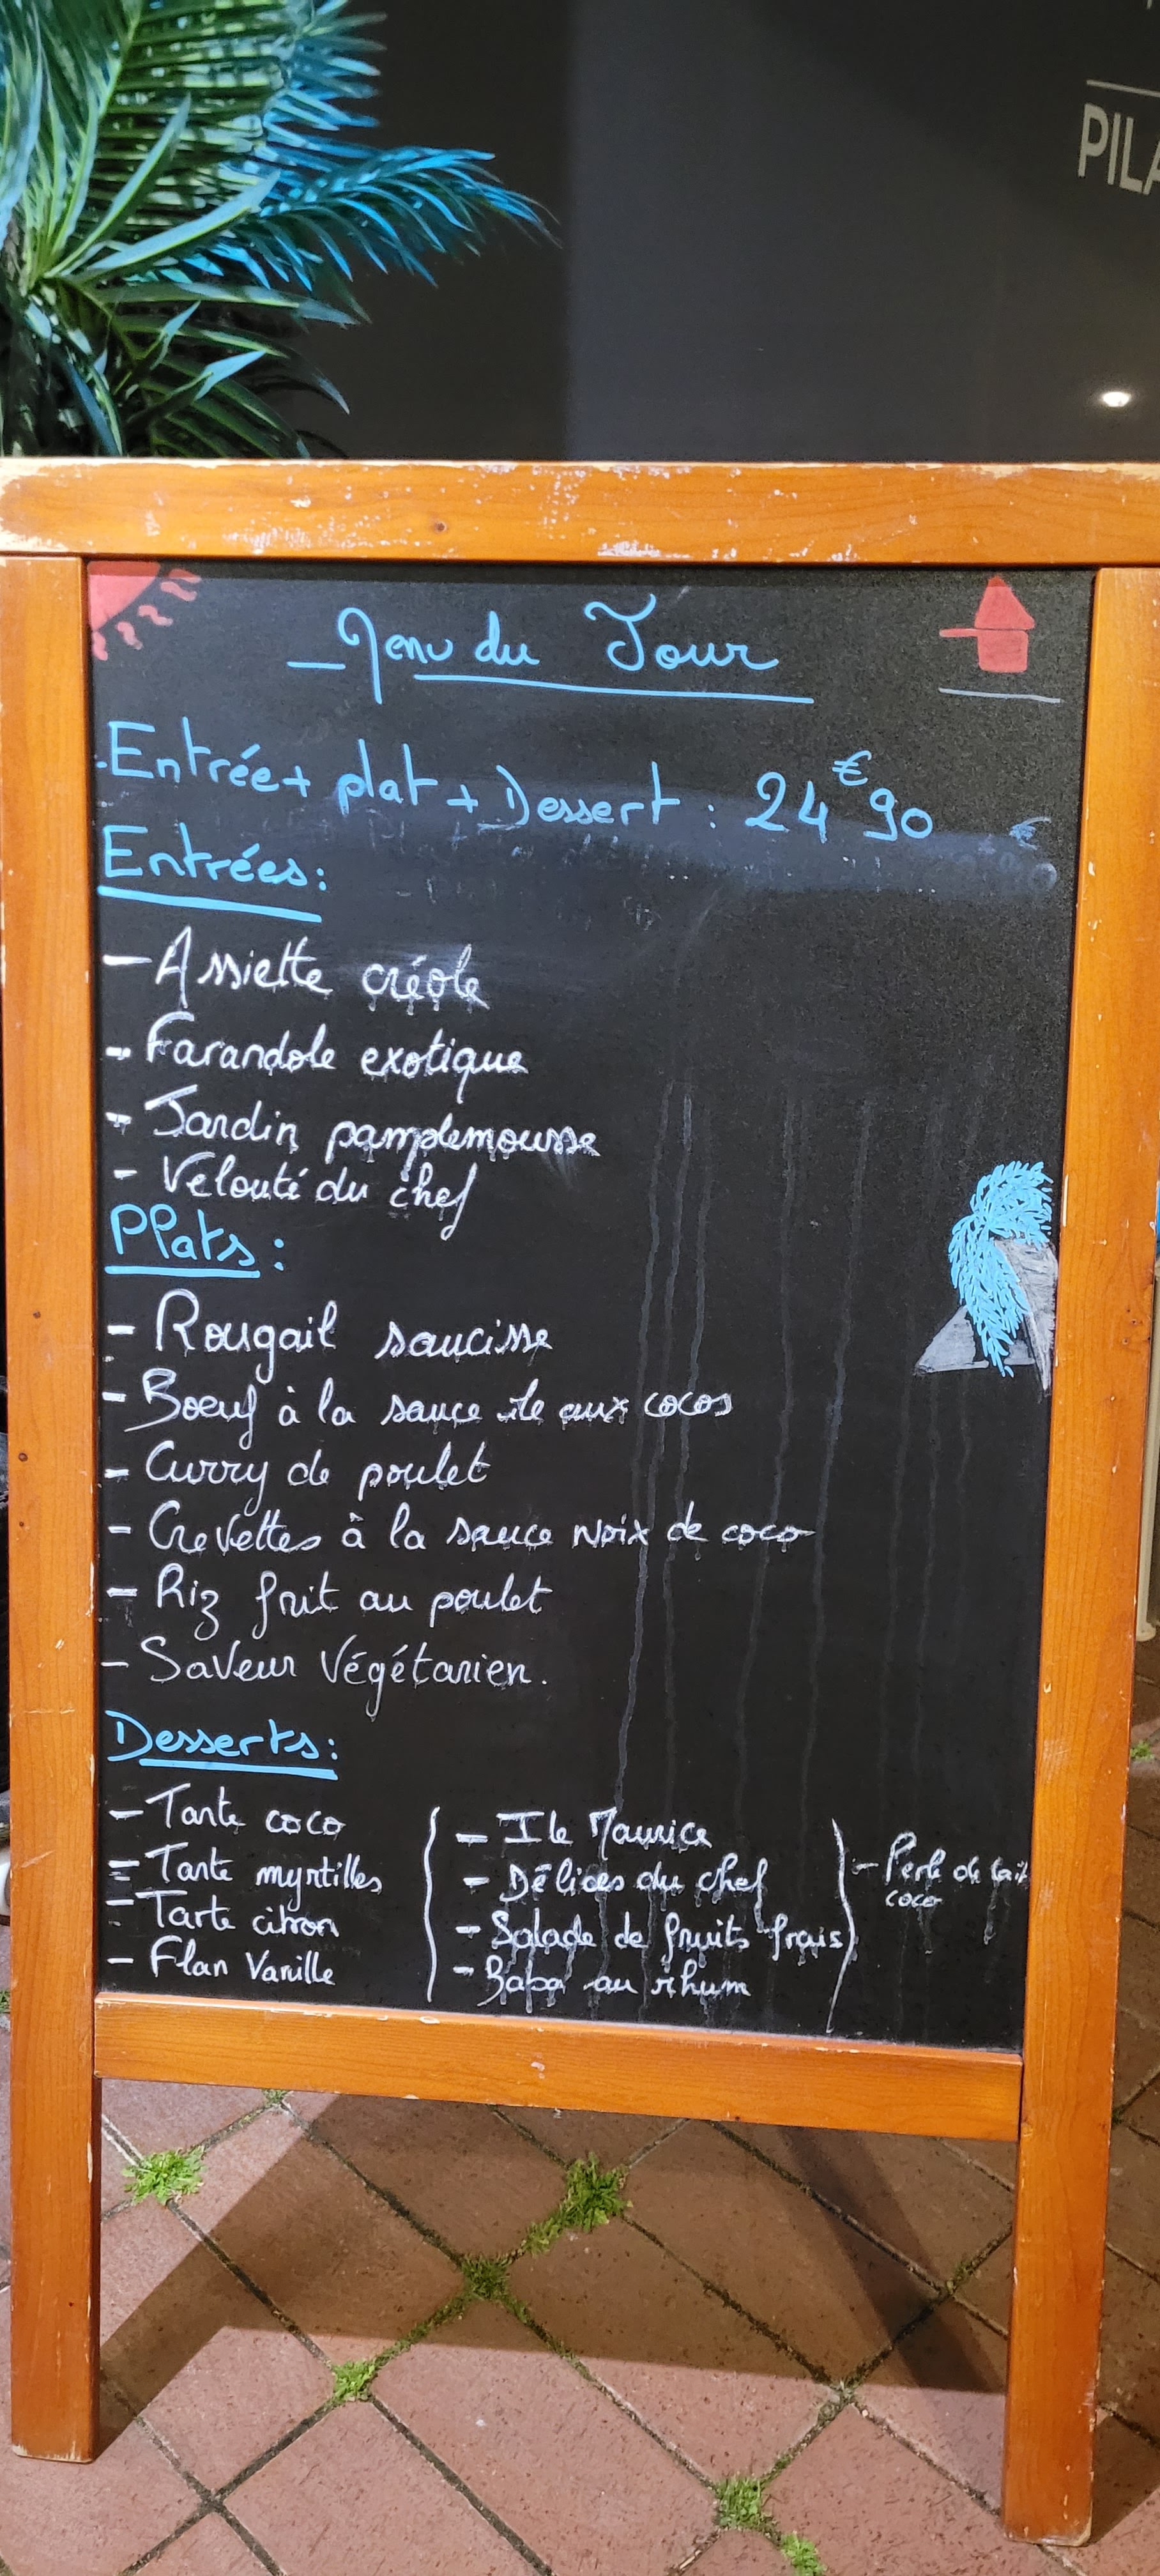 PILA
Menu du Jour
.Entrée + plat + Dessert : 24€90
Entrées:
- Assiette créole
- Farandole exotique
- Jardin pamplemousse
- Velouté du chef
Plats:
- Rougail saucisse
- Boeuf à la sauce île aux cocos
- Curry de poulet
- Crevettes à la sauce noix de coco
- Riz frit au poulet
- Saveur végétarien.
Desserts:
- Tarte coco
- Tarte myrtilles
- Tarte citron
- Flan Vanille
- Ile Maurice
- Délices du chef
- Salade de fruits frais
- Baba au rhum
- Perle de lait
coco